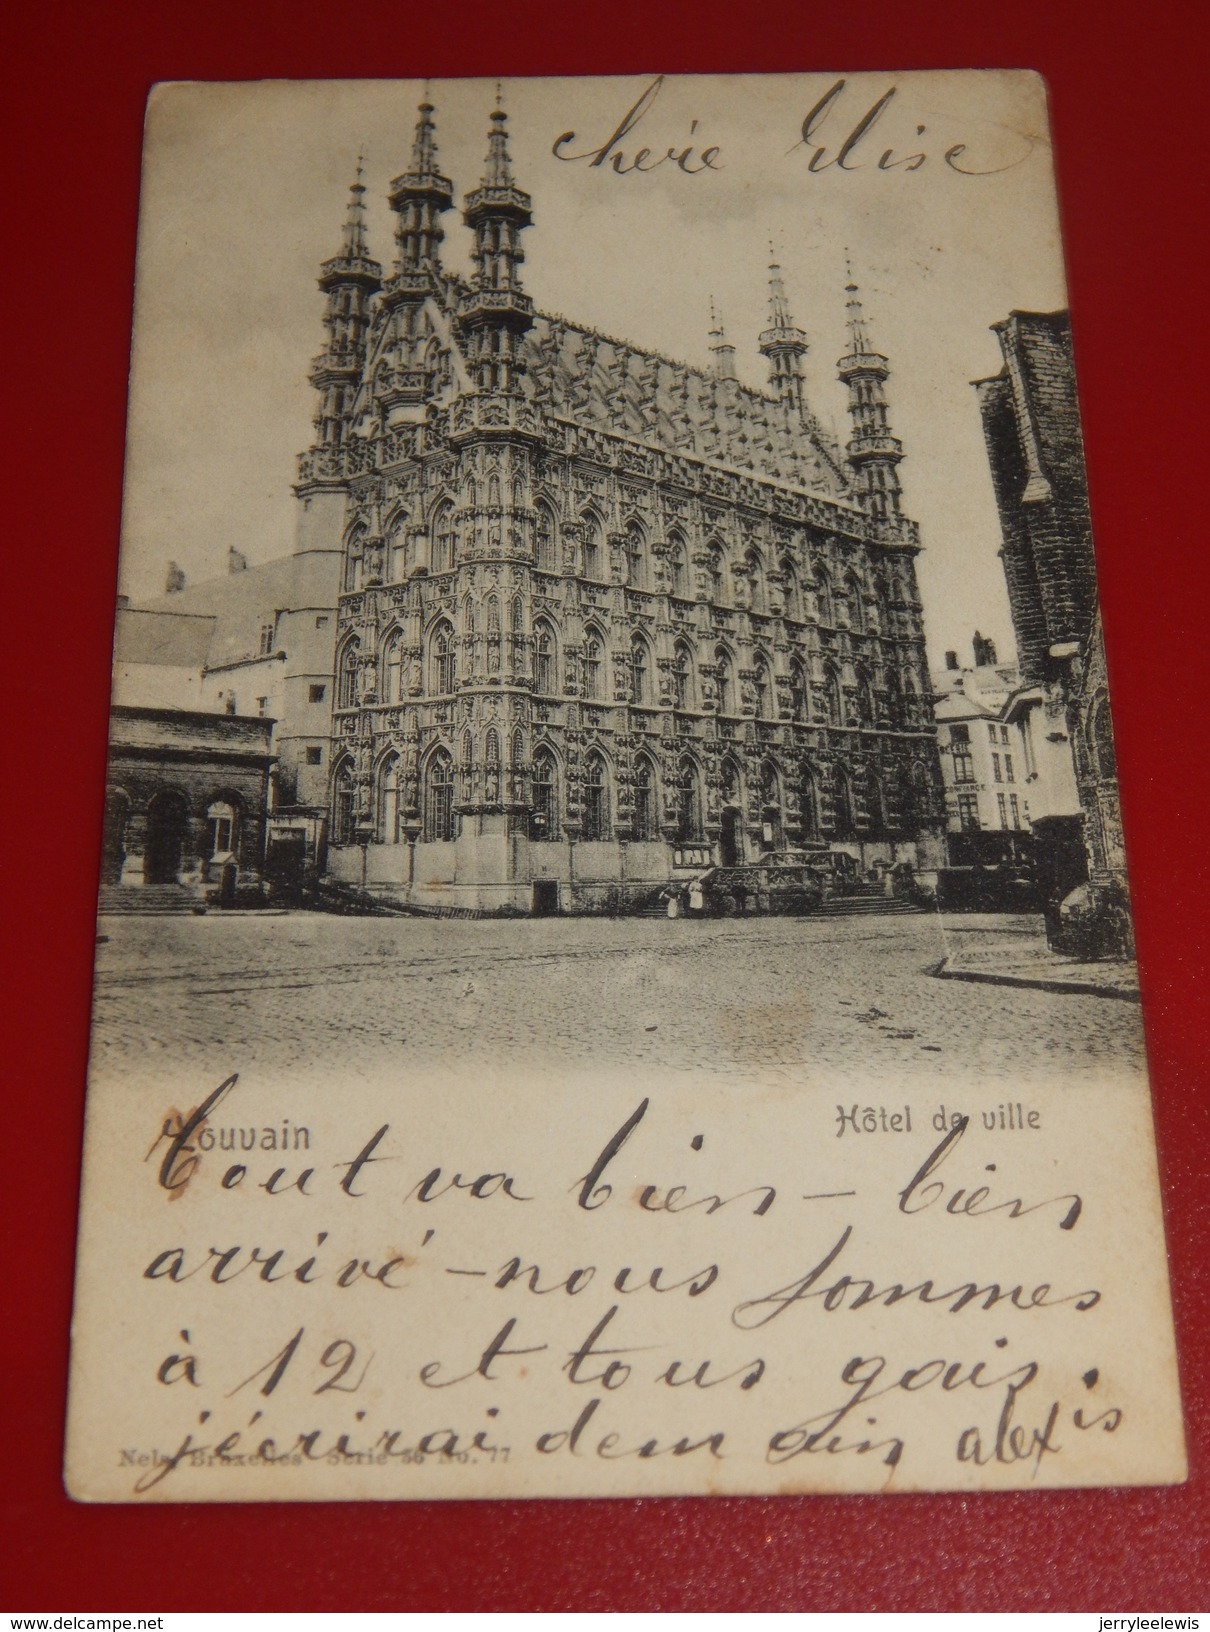 chérie Elise
CONFIANCE
Louvain
Hôtel de ville
Tout va bien - bien
arrivé - nous sommes
à 12 et tous gais.
j'écrirai demain alexis
Nels, Bruxelles Serie 36 No. 77
delcampe.net
jerryleelewis